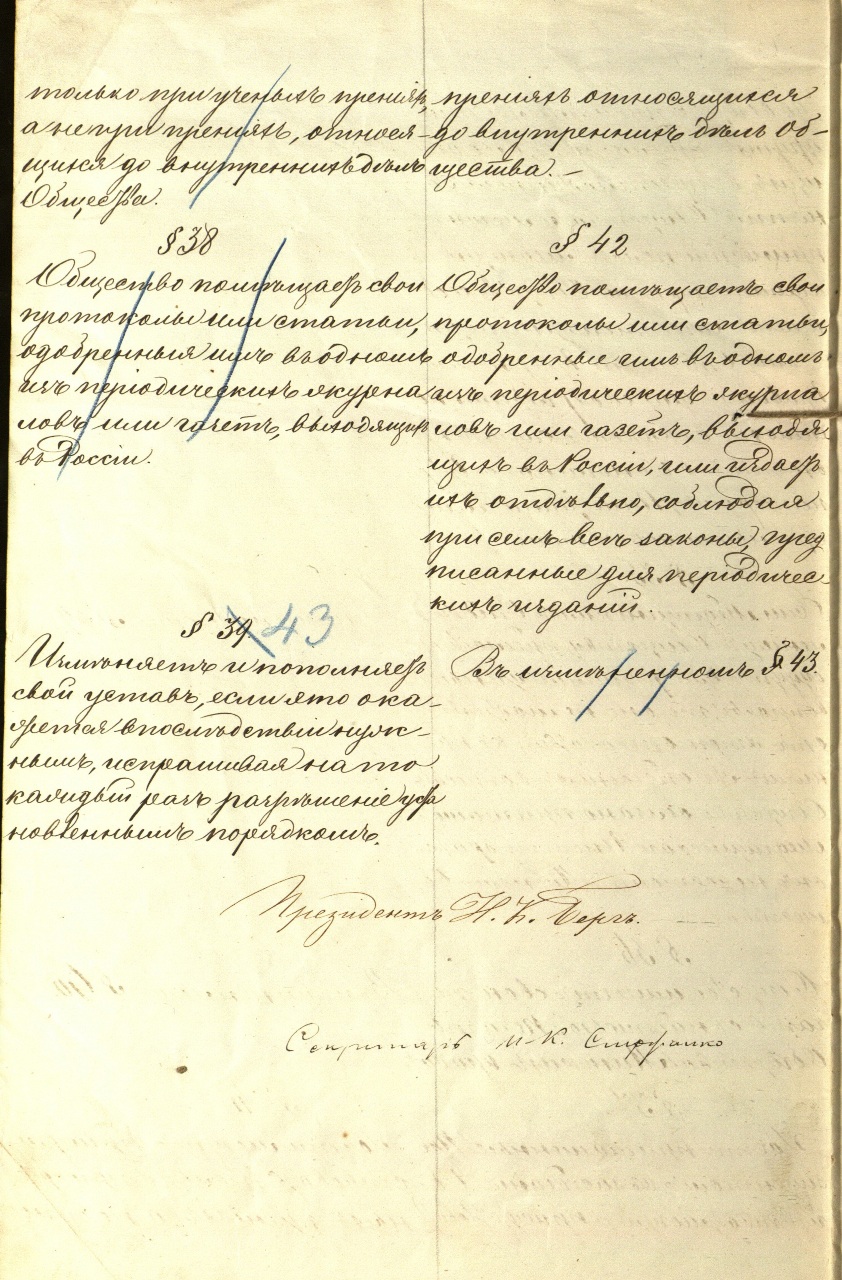 только при ученыхъ преніяхъ,
а не при преніяхъ, относя-
щихся до внутреннихъ дѣлъ
Общества.
§ 38
Общество помѣщаетъ свои
протоколы или статьи,
одобренныя имъ въ одномъ
изъ періодическихъ журна
ловъ или газетъ, выходящихъ
въ Россіи.
§ 39 43
Измѣняетъ и пополняетъ
свой уставъ, если это ока-
жется впослѣдствіи нуж-
нымъ, испрашивая на то
каждый разъ разрѣшеніе уста
новленнымъ порядкомъ.
преніяхъ относящихся
до внутреннихъ дѣлъ об-
щества. –
§ 42
Общество помѣщаетъ свои
протоколы или статьи,
одобренные имъ въ одномъ
изъ періодическихъ журна
ловъ или газетъ, выходя
щихъ въ Россіи, или издаетъ
ихъ отдѣльно, соблюдая
при семъ всѣ законы, пред
писанные для періодичес-
кихъ изданій.
Въ измѣненномъ § 43.
Президентъ Н. К. Бергъ.
Секретарь И. К.